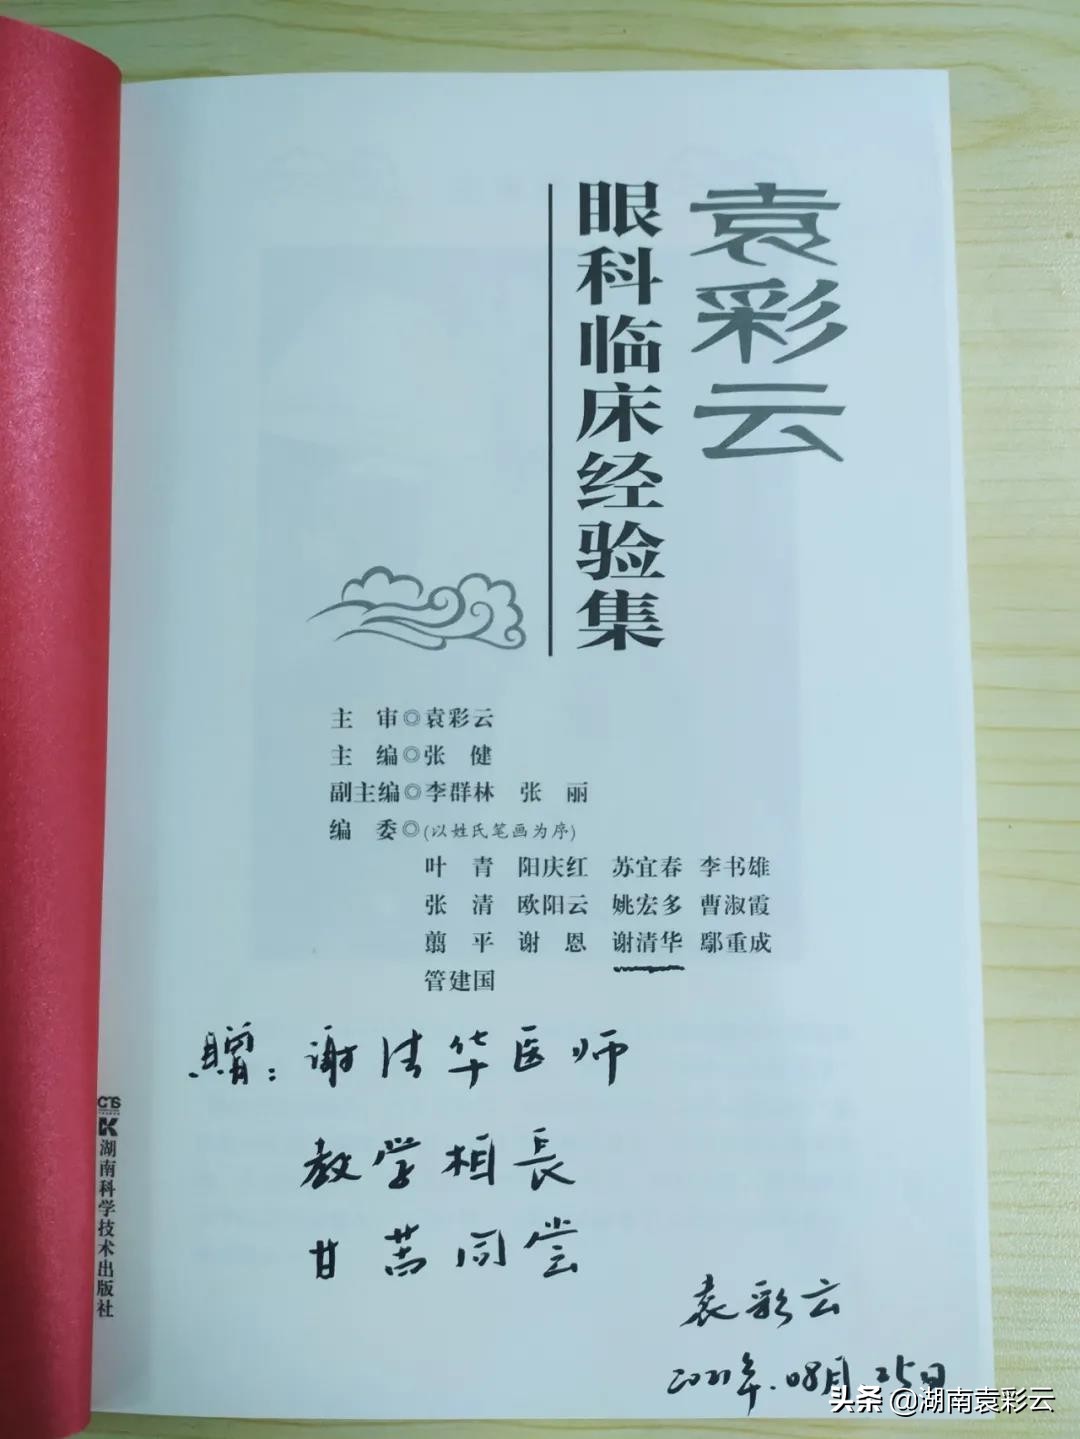 袁彩云
眼科临床经验集
主 审◎袁彩云
主 编◎张 健
副主编◎李群林 张 丽
编 委◎(以姓氏笔画为序)
叶 青 阳庆红 苏宜春 李书雄
张 清 欧阳云 姚宏多 曹淑霞
翦 平 谢 恩 谢清华 鄢重成
管建国
贈：谢清华医师
教学相長
甘苦同尝
袁彩云
2021年.08月25日
CTS
K
湖南科学技术出版社
头条 @湖南袁彩云